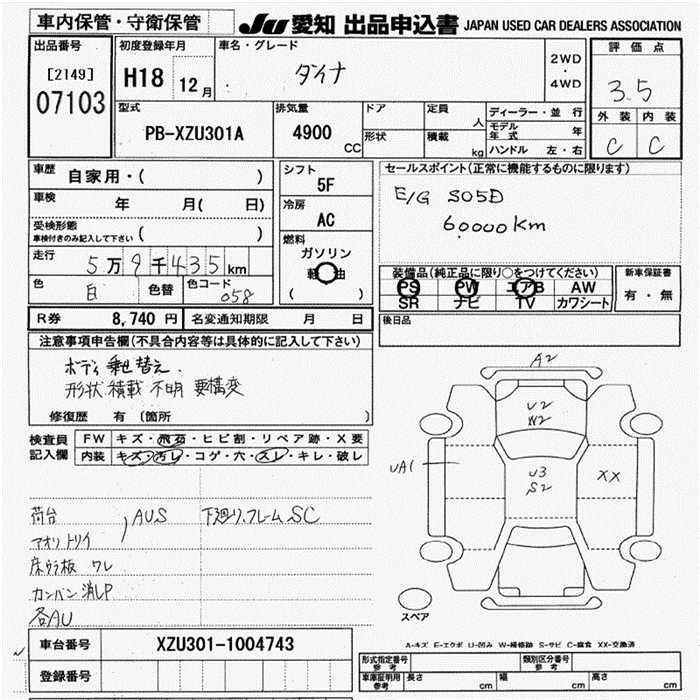 車内保管・守衛保管
JU 愛知 出品申込書 JAPAN USED CAR DEALERS ASSOCIATION
出品番号
[2149]
07103
初度登録年月
H18 12 月
車名・グレード
ダイナ
2WD
・
4WD
評価点
3.5
外装 内装
C C
型式
PB-XZU301A
排気量
4900 CC
ドア
形状
定員 人
積載 kg
ディーラー・並行
モデル年式 年
ハンドル 左・右
車歴 自家用・( )
車検 年 月( 日)
受検形態
車検付きのみ記入して下さい ( )
走行 5万9千435km
色 白 色替 色コード 058
シフト
5F
冷房
AC
燃料
ガソリン
軽油
( )
セールスポイント(正常に機能するものに限ります)
E/G S05D
60000Km
装備品(純正品に限り○をつけてください)
PS PW エアB AW
SR ナビ TV カワシート
新車保証書
有・無
R券 8,740 円 名変通知期限 月 日
後日品
注意事項申告欄(不具合内容等は具体的に記入して下さい)
ボディ乗せ替え
形状.積載 不明 要構変
修復歴 有 (箇所 )
検査員記入欄
FW キズ・飛石・ヒビ割・リペア跡・X要
内装 キズ・汚レ・コゲ・穴・スレ・キレ・破レ
荷台
アオリ トリイ
AUS
下廻り、フレームSC
床ウラ板 ワレ
カンバン消しP
各AU
A2
U2
W2
UA1
U3
S2
XX
スペア
A-キズ E-エクボ U-凹み W-補修跡 S-サビ C-腐食 XX-交換済
車台番号 XZU301-1004743
登録番号
形式指定番号
参考
類別区分番号
参考
車庫証明用
参考
長さ cm 幅 cm 高さ cm